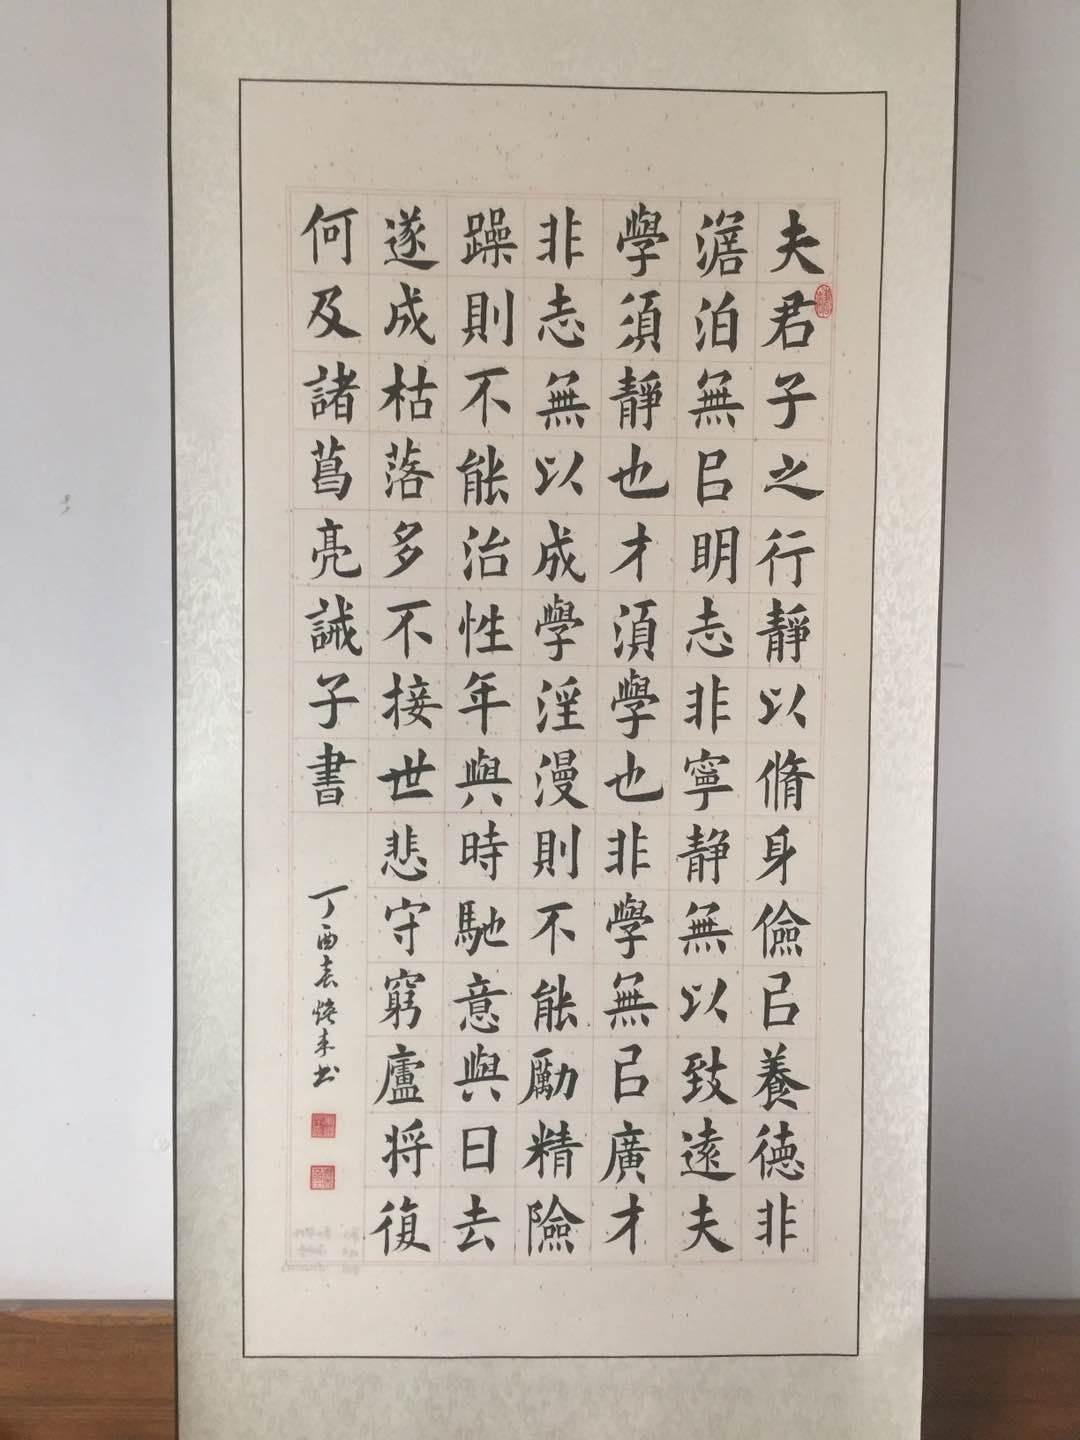 夫君子之行靜以脩身儉㠯養德非
澹泊無㠯明志非寧静無以致遠夫
學須靜也才須學也非學無㠯廣才
非志無以成學淫漫則不能勵精險
躁則不能治性年與時馳意與日去
遂成枯落多不接世悲守窮廬将復
何及諸葛亮誡子書
丁酉春 来书